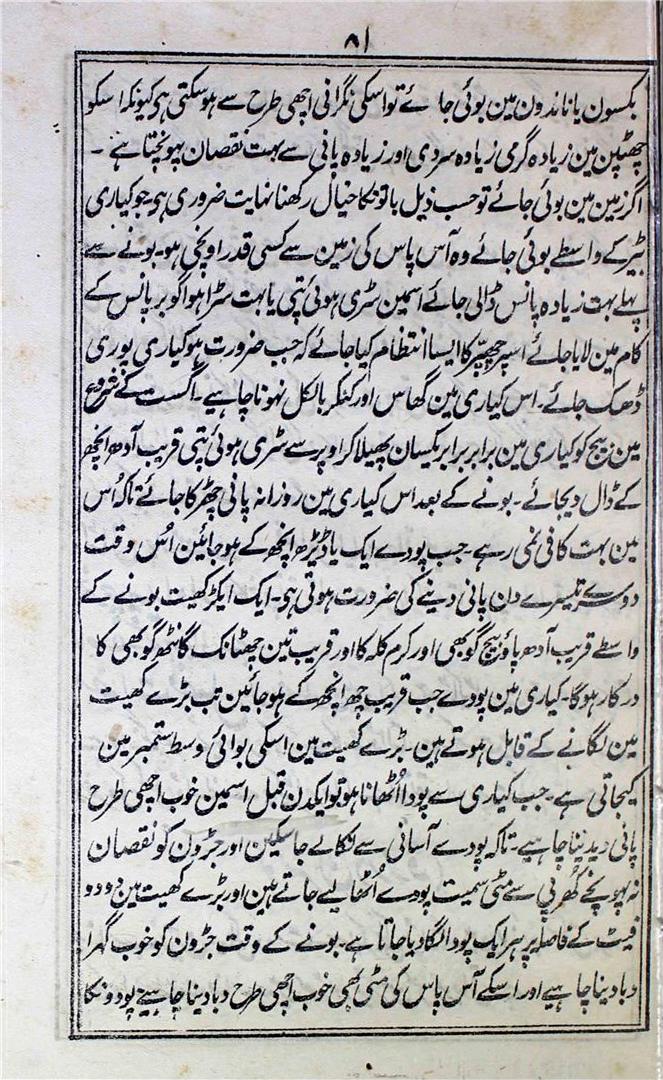 ۸۱
بکسون یا ناندون مین بوئی جاۓ تو اسکی نگرانی اچھی طرح سے ہوسکتی ہی کیونکہ اسکو
چھٹپن مین زیادہ گرمی زیادہ سردی اور زیادہ پانی سے بہت نقصان پہونچتا ہے ۔
اگر زمین مین بوئی جاۓ تو حسب ذیل باتونکا خیال رکھنا نہایت ضروری ہی جو کیاری
بٹیر کے واسطے بوئی جاۓ وہ آس پاس کی زمین سے کسی قدر اونچی ہو۔ بونے سے
پہلے بہت زیادہ پانس ڈالی جاۓ اسمین سڑی ہوئی پتی یا بہت سڑا ہوا گوبر پانس کے
کام مین لایا جاۓ اسپر چھپّر کا ایسا انتظام کیا جاۓ کہ جب ضرورت ہو کیاری پوری
ڈھک جاۓ۔ اس کیاری مین گھاس اور کنکر بالکل نہونا چاہیے۔ اگست کے شروع
مین بیج کو کیاری مین برابر برابر یکسان پھیلا کر اوپر سے سڑی ہوئی پتی قریب آدھ انچھ
کے ڈال دیجاۓ۔ بونے کے بعد اس کیاری مین روزانہ پانی چھڑکا جاۓ تاکہ اُس
مین بہت کافی نمی رہے۔ جب پودے ایک یا ڈیڑھ انچھ کے ہوجائین اُس وقت
دوسرے تیسرے دن پانی دینے کی ضرورت ہوتی ہی۔ ایک ایکڑ کھیت بونے کے
واسطے قریب آدھ پاؤ بیج گوبھی اور کرم کلہ کا اور قریب تین چھٹانک گانٹھ گوبھی کا
درکار ہوگا۔ کیاری مین پودے جب قریب چھ انچھ کے ہوجائین تب بڑے کھیت
مین لگانے کے قابل ہوتے ہین۔ بڑے کھیت مین اسکی بوائی وسط ستمبر مین
کیجاتی ہے۔ جب کیاری سے پودا اُٹھانا ہو تو ایکدن قبل اسمین خوب اچھی طرح
پانی دیدینا چاہیے۔ تاکہ پودے آسانی سے نکالے جاسکین اور جڑون کو نقصان
نہ پہونچے کُھرپی سے مٹی سمیت پودے اُٹھا لیے جاتے ہین اور بڑے کھیت مین دو دو
فیٹ کے فاصلہ پر ہر ایک پودا لگا دیا جاتا ہے۔ بونے کے وقت جڑون کو خوب گہرا
دبا دینا چاہیے اور اسکے آس پاس کی مٹی بھی خوب اچھی طرح دبا دینا چاہیے پودونکا